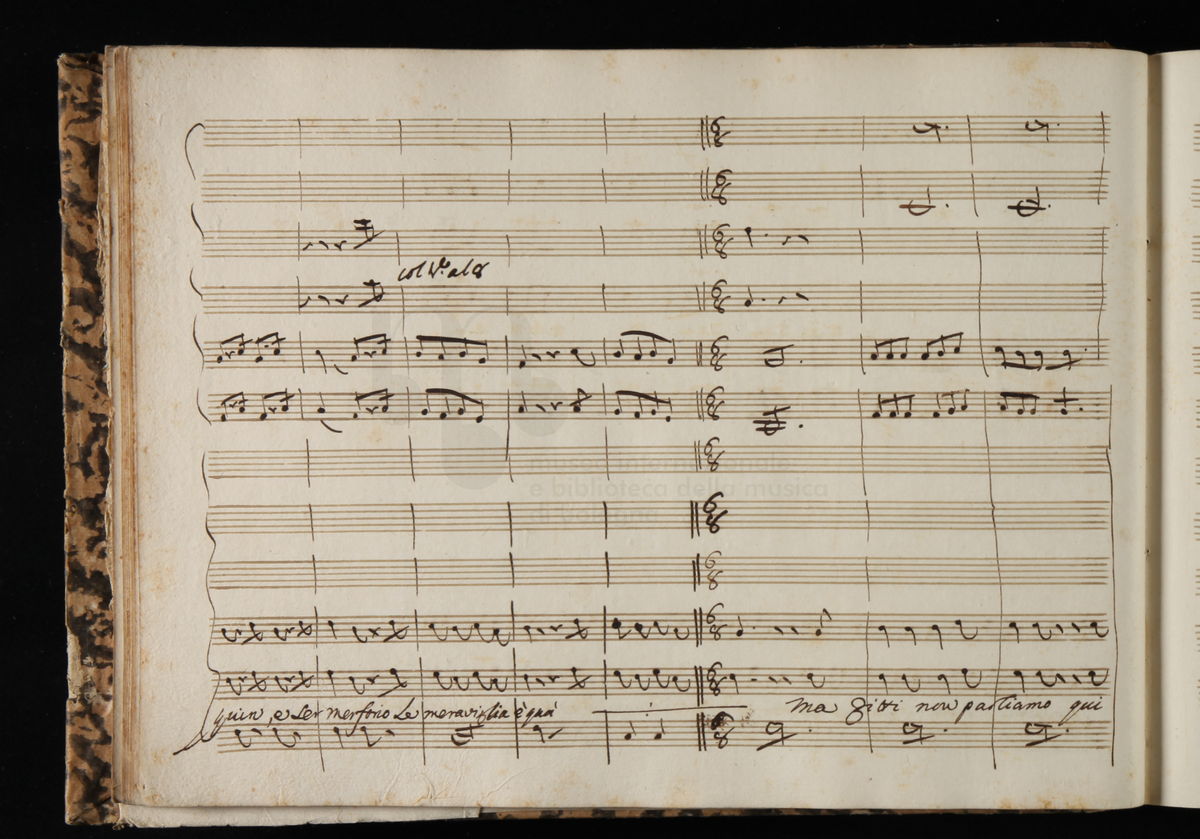 col V.no al 8
museo internazionale
e biblioteca della musica
di bologna
quin, e ser merforio Le meraviglia è quà
Ma Zitti non partiamo qui